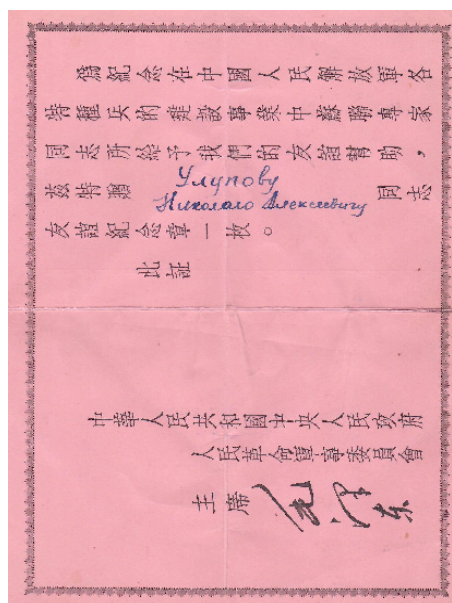 為紀念在中國人民解放軍各
特種兵的建設事業中蘇聯專家
同志所給予我們的友誼幫助，
茲特贈 Улупову Николаю Алексеевичу 同志
友誼紀念章一枚。
此証
中華人民共和國中央人民政府
人民革命軍事委員會
主席 毛澤东